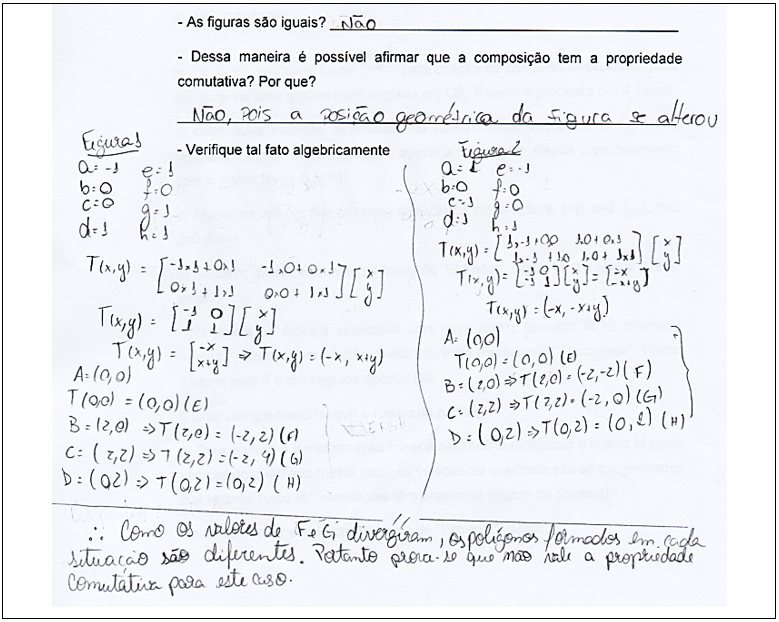 - As figuras são iguais? Não
- Dessa maneira é possível afirmar que a composição tem a propriedade
comutativa? Por que?
Não, pois a posição geométrica da figura se alterou
- Verifique tal fato algebricamente
Figura 1
a=-1 e=1
b=0 f=0
c=0 g=1
d=1 h=1
T(x,y) = [-1x1+0x1 -1.0+0x1
0x1+1x1 0x0+1x1] [x
y]
T(x,y) = [-1 0
1 1] [x
y]
T(x,y) = [-x
x+y] ⇒ T(x,y) = (-x, x+y)
A=(0,0)
T(0,0) = (0,0) (E)
B=(2,0) ⇒ T(2,0) = (-2,2) (F)
C=(2,2) ⇒ T(2,2) = (-2,4) (G)
D=(0,2) ⇒ T(0,2) = (0,2) (H)
Figura 2
a=1 e=-1
b=0 f=0
c=1 g=0
d=1 h=1
T(x,y) = [1x-1+0x0 1.0+0x1
1x-1+1x0 1x0+1x1] [x
y]
T(x,y) = [-1 0
-1 1] [x
y] = [-x
-x+y]
T(x,y) = (-x, -x+y)
A=(0,0)
T(0,0) = (0,0) (E)
B=(2,0) ⇒ T(2,0) = (-2,-2) (F)
C=(2,2) ⇒ T(2,2) = (-2,0) (G)
D=(0,2) ⇒ T(0,2) = (0,2) (H)
∴ Como os valores de F e G divergiram, os polígonos formados em cada
situação são diferentes. Portanto prova-se que não vale a propriedade
comutativa para este caso.